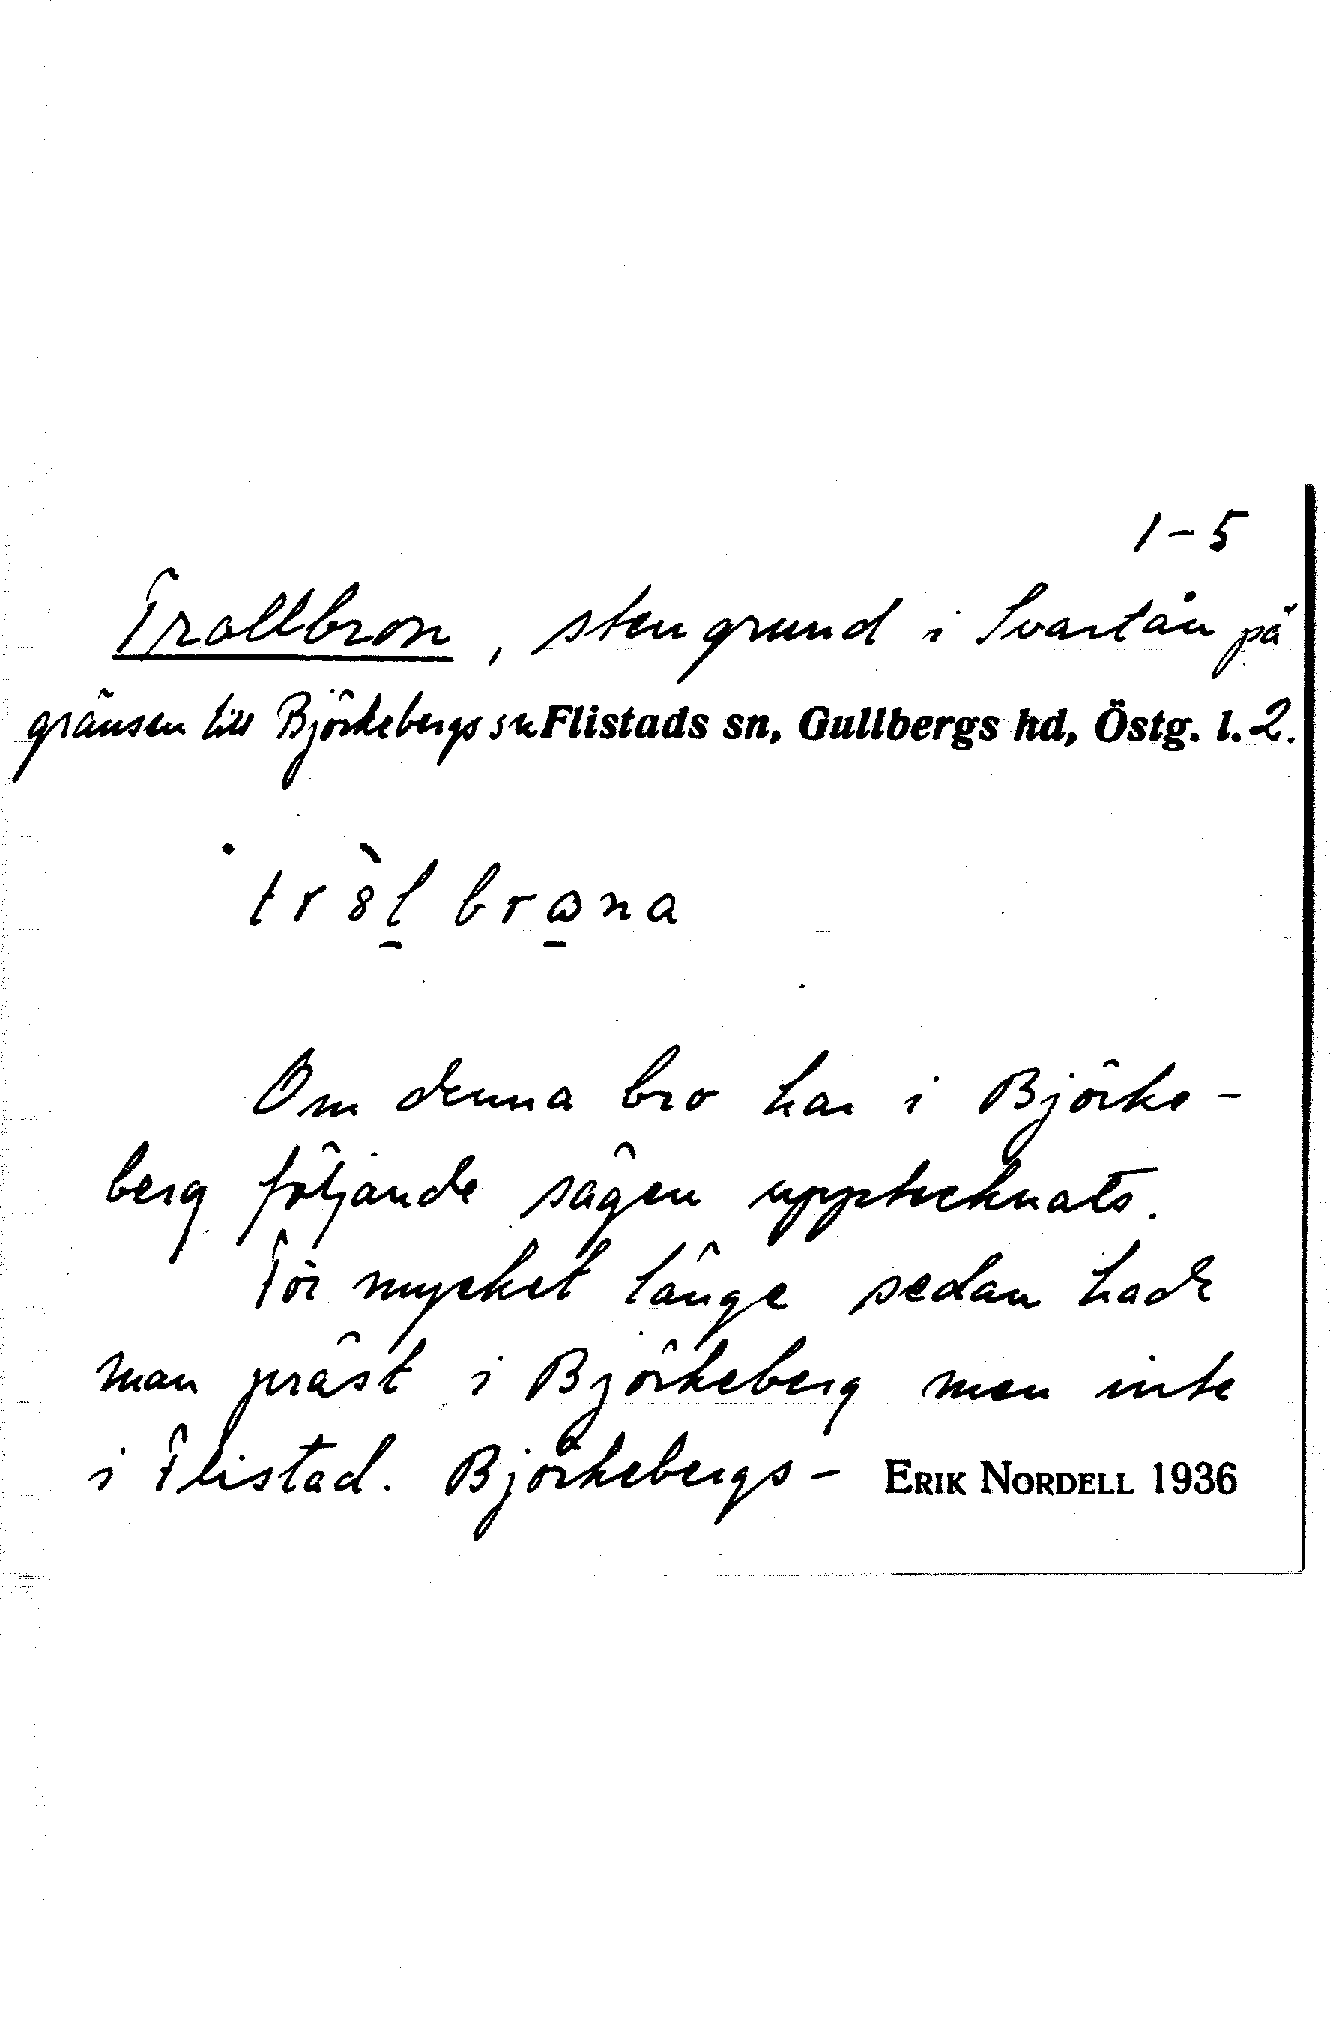 1-5
Trollbron, stengrund i Svartån på
gränsen till Björkebergs sn Flistads sn, Gullbergs hd, Östg. l. 2.
Om denna bro har i Björke-
berg följande sägen upptecknats.
För mycket länge sedan hade
man präst i Björkeberg men inte
i Flistad. Björkebergs- ERIK NORDELL 1936